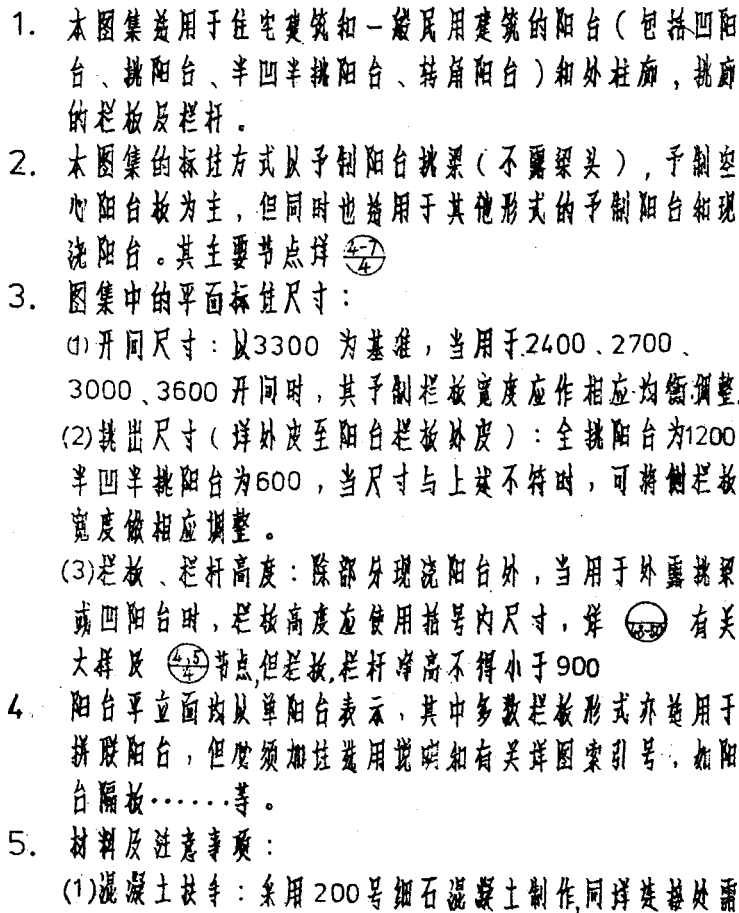 1. 本图集适用于住宅建筑和一般民用建筑的阳台(包括凹阳
台、挑阳台、半凹半挑阳台、转角阳台)和外柱廊,挑廊
的栏板及栏杆。
2. 本图集的标注方式以予制阳台挑梁(不露梁头),予制空
心阳台板为主,但同时也适用于其他形式的予制阳台和现
浇阳台。其主要节点详 4-7/4
3. 图集中的平面标注尺寸:
(1)开间尺寸:以3300 为基准,当用于2400、2700、
3000、3600 开间时,其予制栏板宽度应作相应均衡调整.
(2)挑出尺寸(详外皮至阳台栏板外皮):全挑阳台为1200
半凹半挑阳台为600,当尺寸与上述不符时,可将侧栏板
宽度做相应调整。
(3)栏板、栏杆高度:除部分现浇阳台外,当用于外露挑梁
或凹阳台时,栏板高度应使用括号内尺寸,详 有关
大样及 4,5/4 节点,但栏板,栏杆净高不得小于900
4. 阳台平立面均以单阳台表示,其中多数栏板形式亦适用于
拼联阳台,但必须加注选用说明和有关详图索引号,如阳
台隔板······等。
5. 材料及注意事项:
(1)混凝土扶手:采用200号细石混凝土制作,同详连接处需